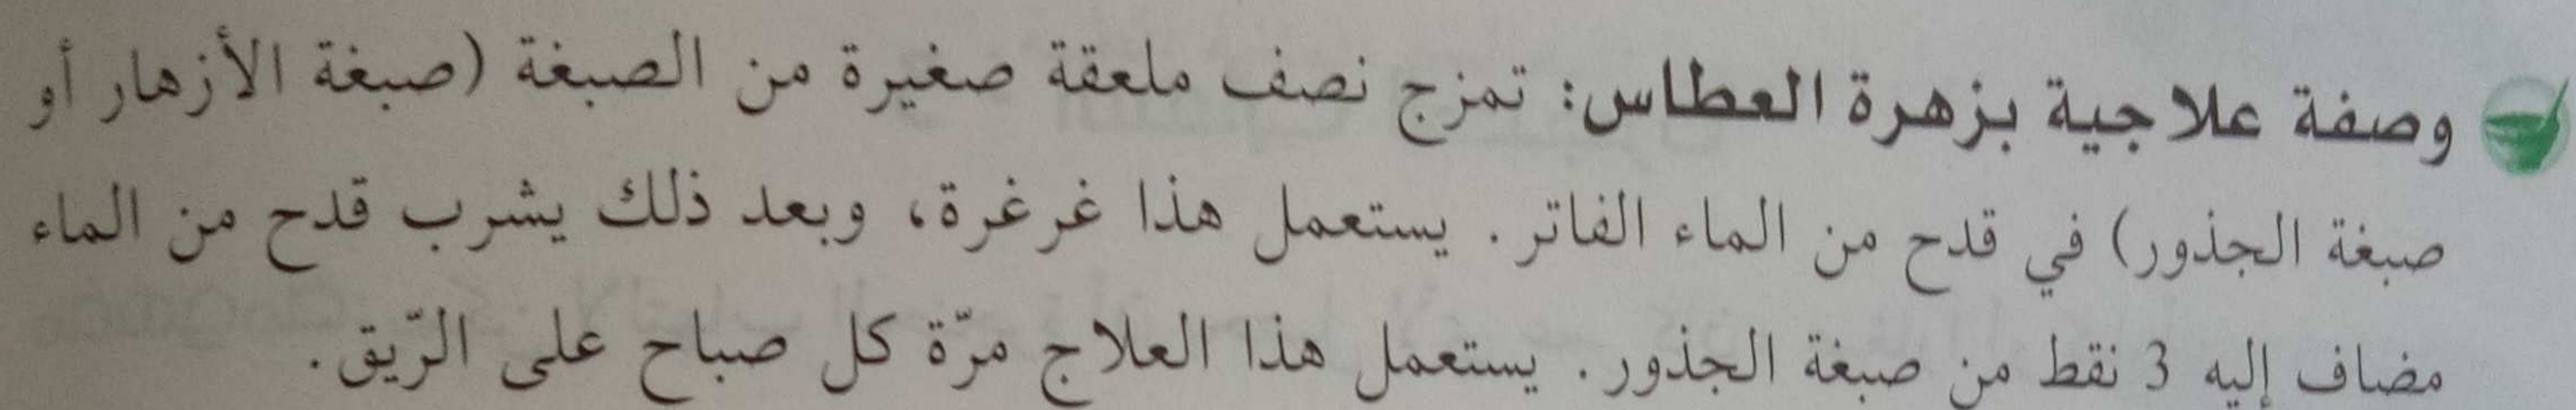 وصفة علاجية بزهرة العطاس: تمزج نصف ملعقة صغيرة من الصبغة (صبغة الأزهار أو
صبغة الجذور) في قدح من الماء الفاتر. يستعمل هذا غرغرة، وبعد ذلك يشرب قدح من الماء
مضاف إليه 3 نقط من صبغة الجذور. يستعمل هذا العلاج مرّة كل صباح على الرّيق.